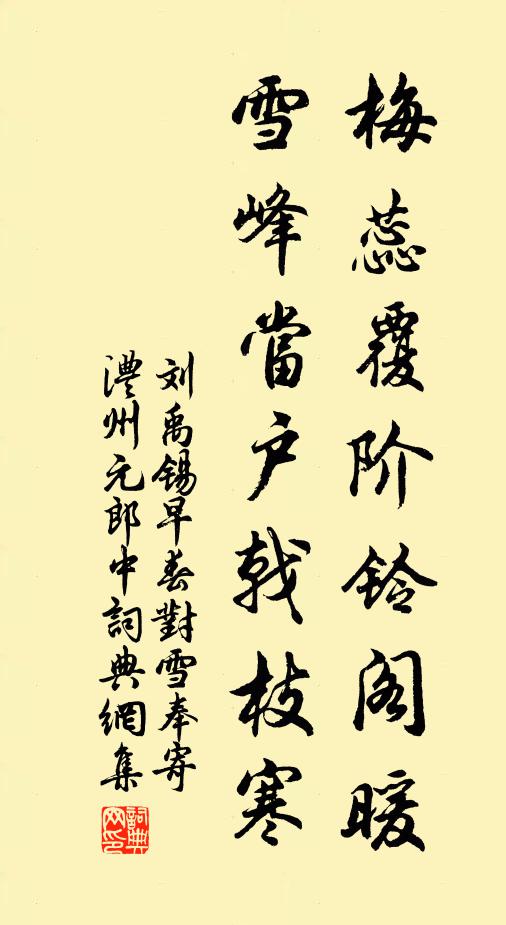 梅蕊覆阶铃阁暖
雪峰當户戟枝寒
刘禹锡早春對雪奉寄
澧州元郎中詞典網集
詞典
网印